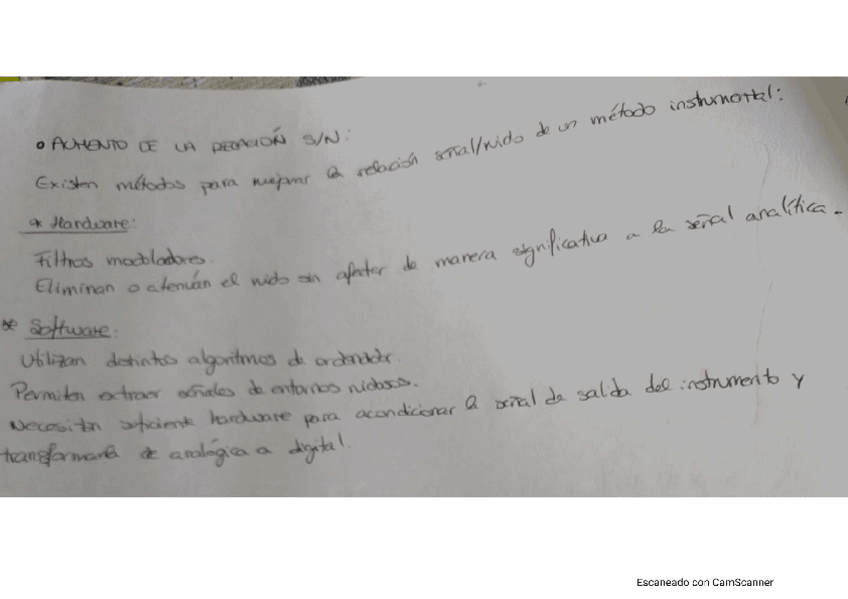 • AUMENTO DE LA RELACIÓN S/N:
Existen métodos para mejorar la relación señal/ruido de un método instrumental:
* Hardware:
Filtros moduladores.
Eliminan o atenúan el ruido sin afectar de manera significativa a la señal analítica.
* Software:
Utilizan distintos algoritmos de ordenador.
Permiten extraer señales de entornos ruidosos.
Necesitan suficiente hardware para acondicionar la señal de salida del instrumento y
transformarla de analógica a digital.
Escaneado con CamScanner